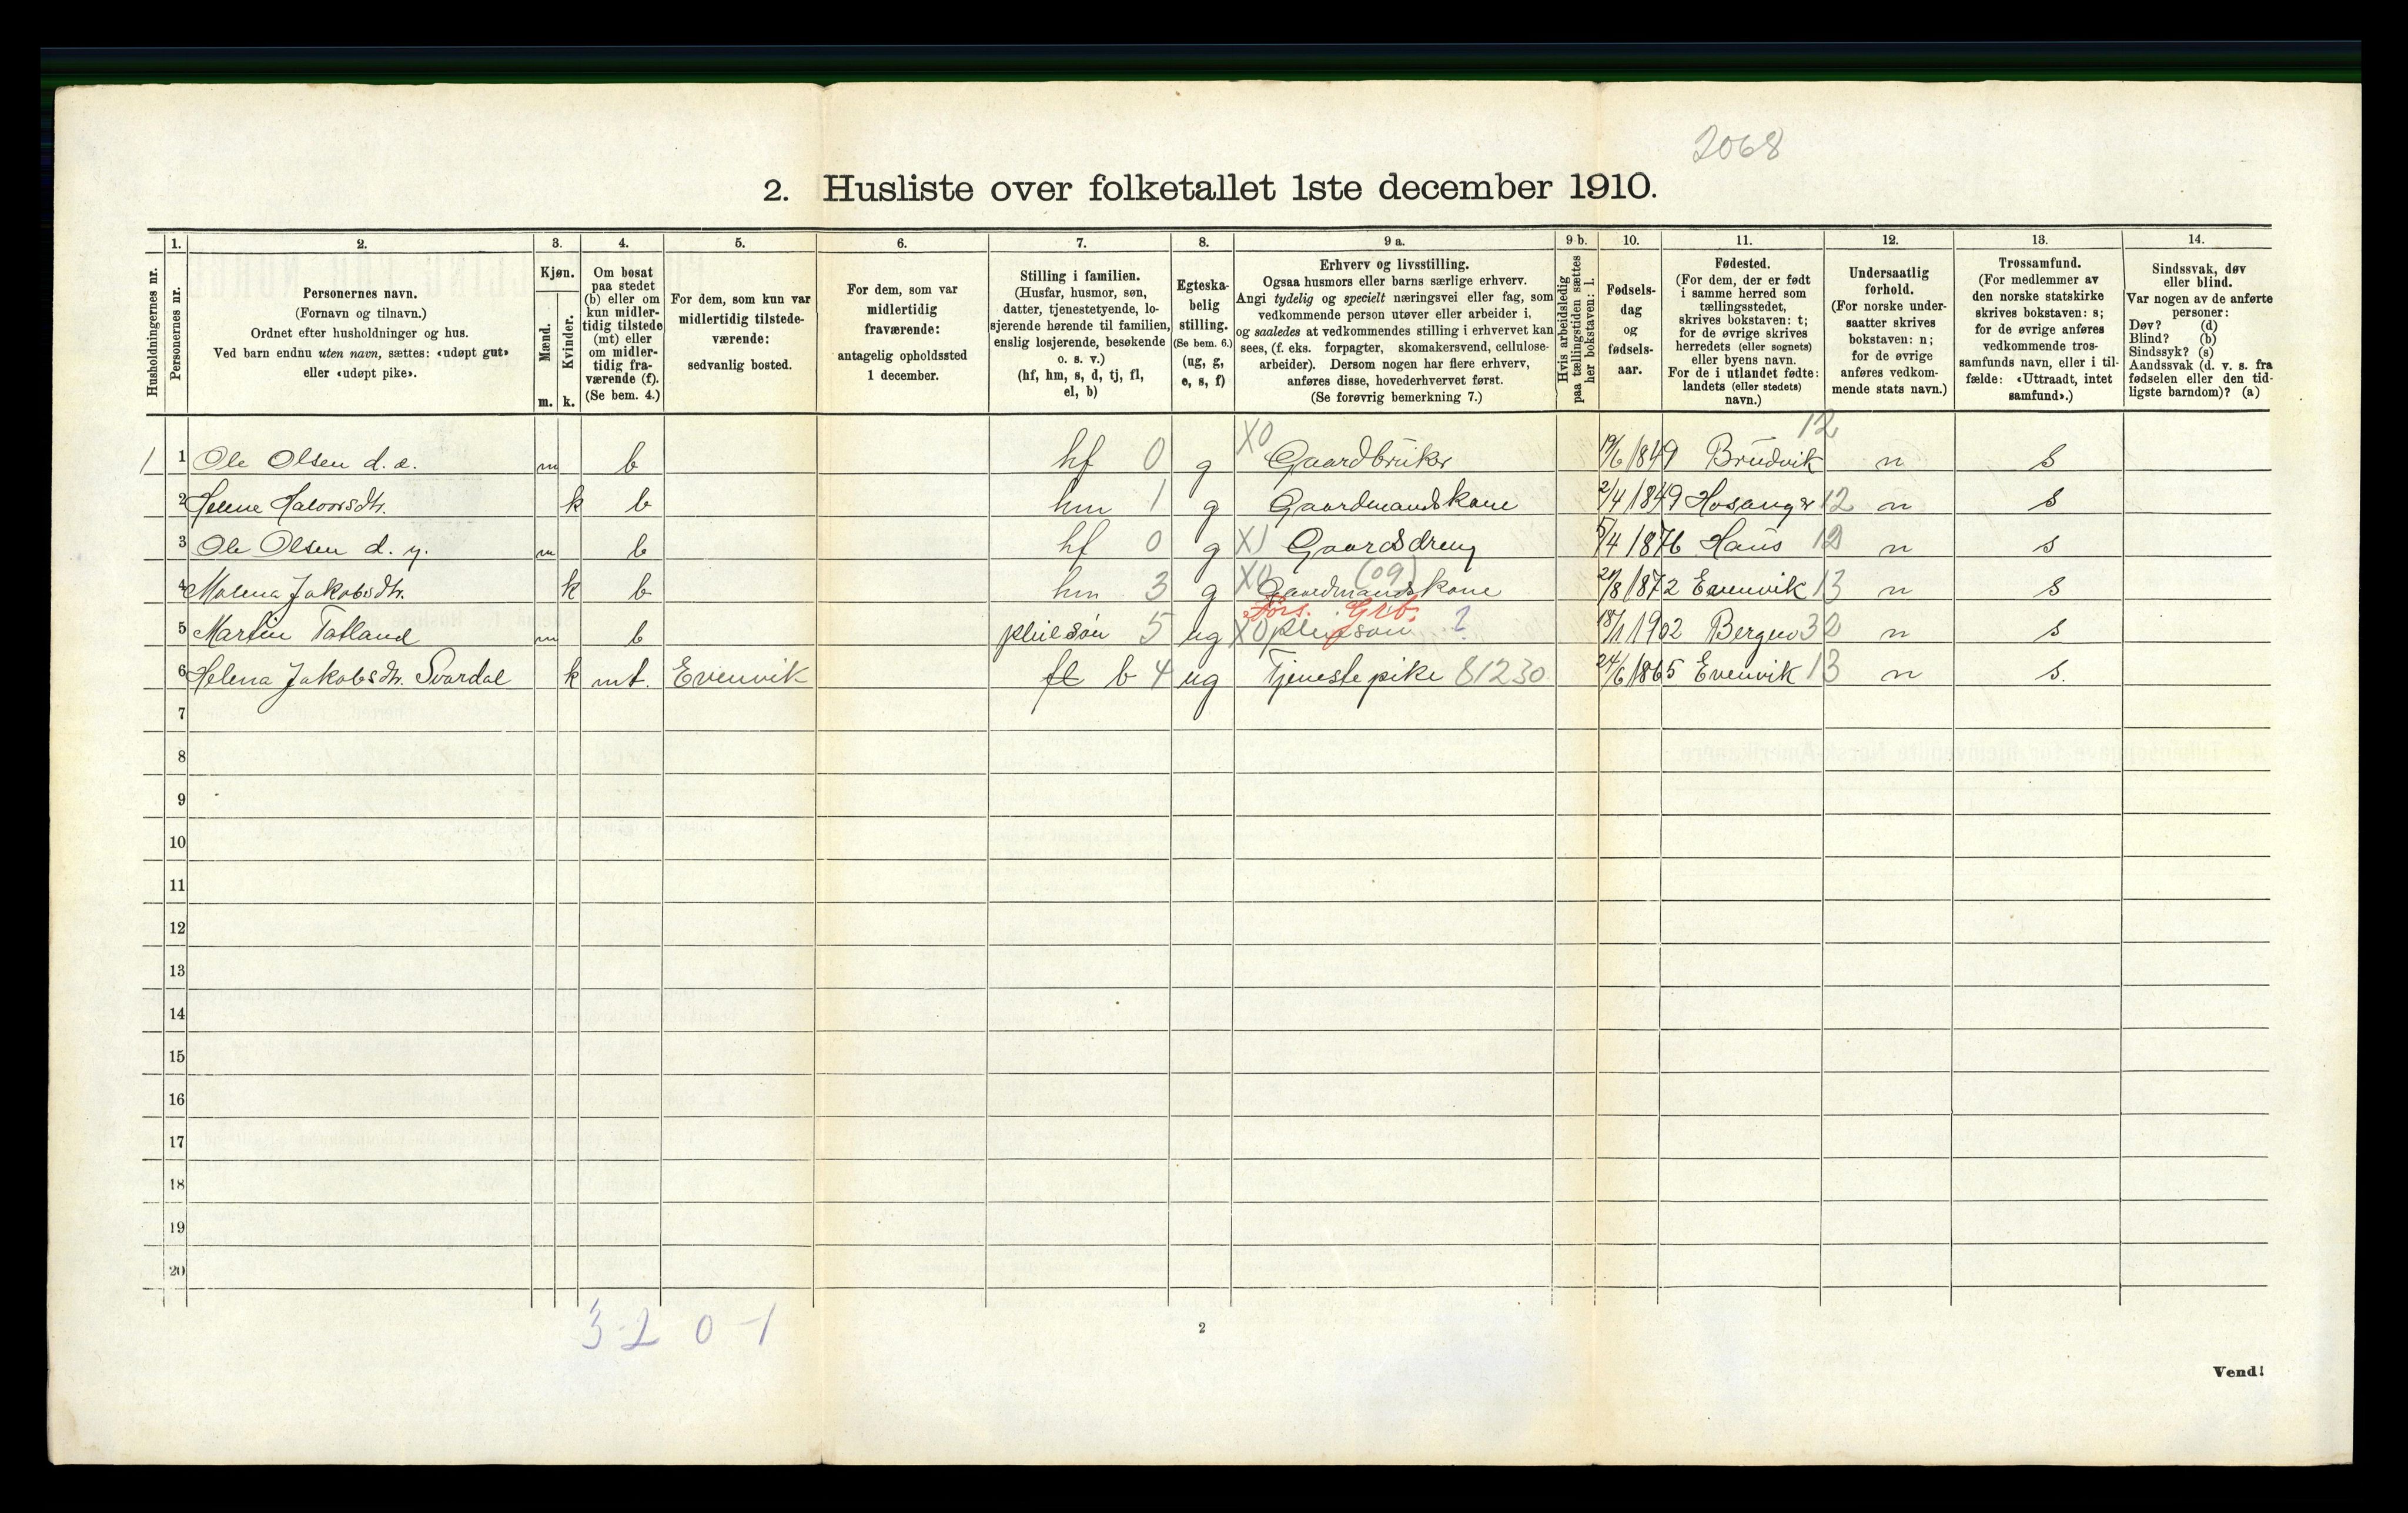 2068
2. Husliste over folketallet 1ste december 1910.
1. 2. 3. 4. 5. 6. 7. 8. 9 a. 9 b. 10. 11. 12. 13. 14.
Husholdningernes nr.
Personernes nr.
Personernes navn.
(Fornavn og tilnavn.)
Ordnet efter husholdninger og hus.
Ved barn endnu uten navn, sættes: «udøpt gut»
eller «udøpt pike».
Kjøn.
Mænd.
Kvinder.
m. k.
Om bosat
paa stedet
(b) eller om
kun midler-
tidig tilstede
(mt) eller
om midler-
tidig fra-
værende (f).
(Se bem. 4.)
For dem, som kun var
midlertidig tilstede-
værende:
sedvanlig bosted.
For dem, som var
midlertidig
fraværende:
antagelig opholdssted
1 december.
Stilling i familien.
(Husfar, husmor, søn,
datter, tjenestetyende, lo-
sjerende hørende til familien,
enslig losjerende, besøkende
o. s. v.)
(hf, hm, s, d, tj, fl,
el, b)
Egteska-
belig
stilling.
(Se bem. 6.)
(ug, g,
e, s, f)
Erhverv og livsstilling.
Ogsaa husmors eller barns særlige erhverv.
Angi tydelig og specielt næringsvei eller fag, som
vedkommende person utøver eller arbeider i,
og saaledes at vedkommendes stilling i erhvervet kan
sees, (f. eks. forpagter, skomakersvend, cellulose-
arbeider). Dersom nogen har flere erhverv,
anføres disse, hovederhvervet først.
(Se forøvrig bemerkning 7.)
Hvis arbeidsledig
paa tællingstiden sættes
her bokstaven: l.
Fødsels-
dag
og
fødsels-
aar.
Fødested.
(For dem, der er født
i samme herred som
tællingsstedet,
skrives bokstaven: t;
for de øvrige skrives
herredets (eller sognets)
eller byens navn.
For de i utlandet fødte:
landets (eller stedets)
navn.)
Undersaatlig
forhold.
(For norske under-
saatter skrives
bokstaven: n;
for de øvrige
anføres vedkom-
mende stats navn.)
Trossamfund.
(For medlemmer av
den norske statskirke
skrives bokstaven: s;
for de øvrige anføres
vedkommende tros-
samfunds navn, eller i til-
fælde: «Uttraadt, intet
samfund».)
Sindssvak, døv
eller blind.
Var nogen av de anførte
personer:
Døv? (d)
Blind? (b)
Sindssyk? (s)
Aandssvak (d. v. s. fra
fødselen eller den tid-
ligste barndom)? (a)
12
1 1 Ole Olsen d. æ. m b hf 0 g X0 Gaardbruker 19/6 1849 Brudvik n s
2 Helene Halvorsdtr. k b hm 1 g Gaardmandskone 2/4 1849 Hosanger 12 n s
3 Ole Olsen d. y. m b hf 0 g X1 Gaardsdreng 5/4 1876 Haus 12 n s
4 Malena Jakobsdtr. k b hm 3 g X0 (09) Gaardmandskone /8 1872 Evenvik 13 n s
Förs. Grb.
5 Martin Tatland m b pleiesøn 5 ug X0 pleiesøn ? 18/1 1902 Bergen 30 n s
6 Helena Jakobsdtr. Svardal k mt. Evenvik fl b 4 ug Tjenestepike 81230 24/6 1865 Evenvik 13 n s.
7
8
9
10
11
12
13
14
15
16
17
18
19
20
3-2 0-1
2
Vend!